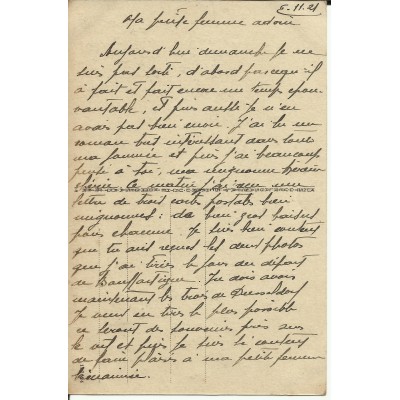 6.11.21
Ma petite femme adorée
Aujourd'hui dimanche je ne
suis pas sorti, d'abord parcequ'il
à fait et fait encore un temps épou
vantable, et puis aussi je n'en
avais pas bien envie. J'ai lu un
roman très intéressant dans toute
ma journée et puis j'ai beaucoup
pensé à toi, ma mignonne
chérie. Ce matin j'ai une
lettre de trois cartes postales bien
mignonnes: de bien gros baisers
pour chacune. Je suis bien content
que tu aies reçues les deux photos
que j'ai tirées le jour du départ
de Tu dois avoir
maintenant les trois de Dusseldorf
Je veux en tirer le plus possible
ce seront des souvenirs pris sur
le vif et puis je suis si content
de faire plaisir à ma petite femme
bien aimée.